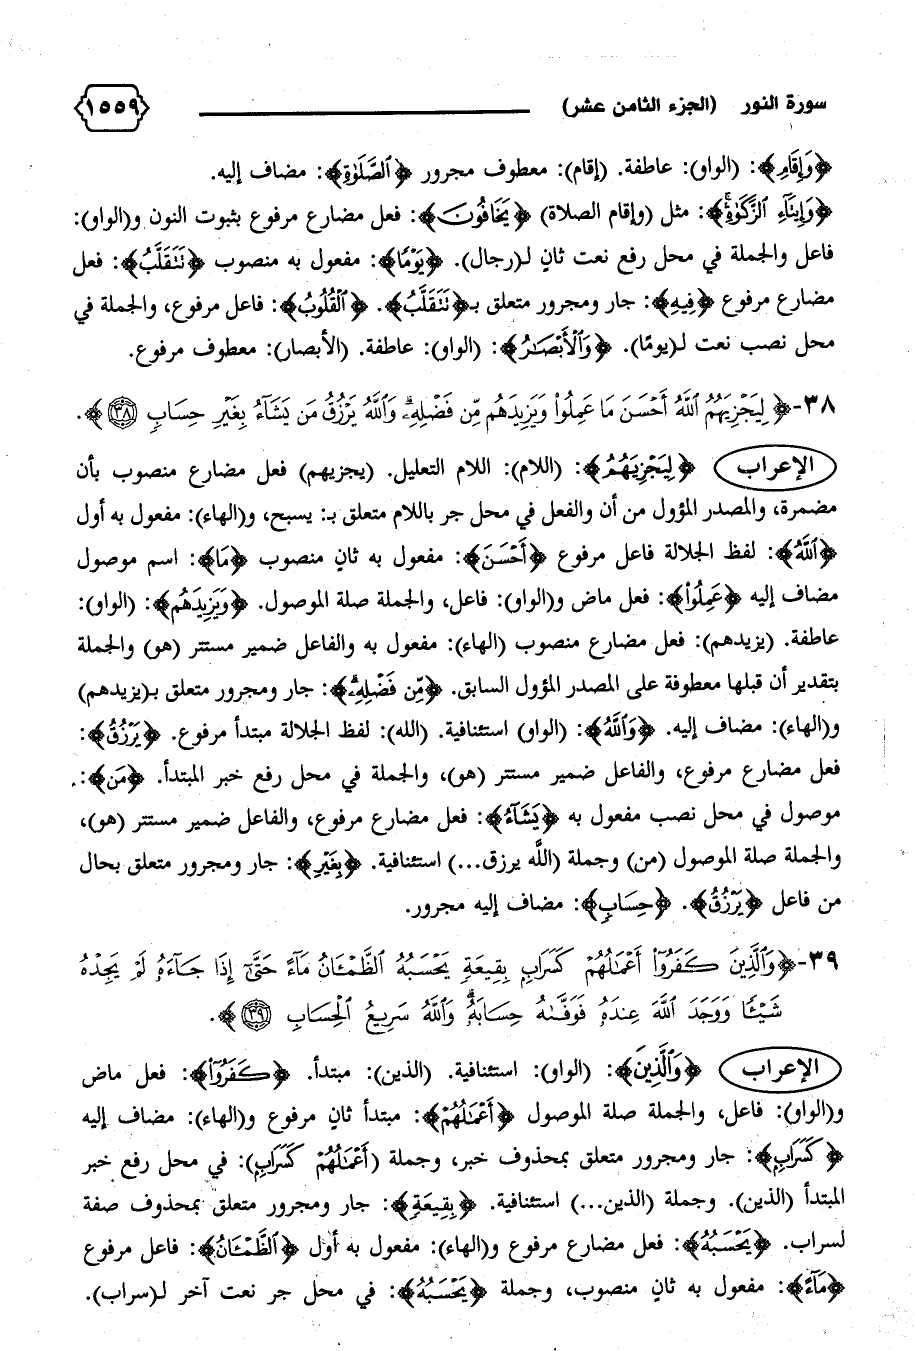 سورة النور (الجزء الثامن عشر) ١٥٥٩
﴿وَإِقَامِ﴾: (الواو): عاطفة. (إقام): معطوف مجرور ﴿الصَّلَوٰةِ﴾: مضاف إليه.
﴿وَإِيتَآءِ الزَّكَوٰةِ﴾: مثل (وإقام الصلاة) ﴿يَخَافُونَ﴾: فعل مضارع مرفوع بثبوت النون و(الواو):
فاعل والجملة في محل رفع نعت ثانٍ لـ(رجال). ﴿يَوْمًا﴾: مفعول به منصوب ﴿تَتَقَلَّبُ﴾: فعل
مضارع مرفوع ﴿فِيهِ﴾: جار ومجرور متعلق بـ﴿تَتَقَلَّبُ﴾. ﴿ٱلْقُلُوبُ﴾: فاعل مرفوع، والجملة في
محل نصب نعت لـ(يومًا). ﴿وَٱلْأَبْصَـٰرُ﴾: (الواو): عاطفة. (الأبصار): معطوف مرفوع.
٣٨-﴿لِيَجْزِيَهُمُ ٱللَّهُ أَحْسَنَ مَا عَمِلُوا۟ وَيَزِيدَهُم مِّن فَضْلِهِۦ ۗ وَٱللَّهُ يَرْزُقُ مَن يَشَآءُ بِغَيْرِ حِسَابٍ ٣٨﴾.
الإعراب ﴿لِيَجْزِيَهُمُ﴾: (اللام): اللام التعليل. (يجزيهم) فعل مضارع منصوب بأن
مضمرة، والمصدر المؤول من أن والفعل في محل جر باللام متعلق بـ: يسبح، و(الهاء): مفعول به أول
﴿ٱللَّهُ﴾: لفظ الجلالة فاعل مرفوع ﴿أَحْسَنَ﴾: مفعول به ثانٍ منصوب ﴿مَا﴾: اسم موصول
مضاف إليه ﴿عَمِلُوا۟﴾: فعل ماض و(الواو): فاعل، والجملة صلة الموصول. ﴿وَيَزِيدَهُم﴾: (الواو):
عاطفة. (يزيدهم): فعل مضارع منصوب (الهاء): مفعول به والفاعل ضمير مستتر (هو) والجملة
بتقدير أن قبلها معطوفة على المصدر المؤول السابق. ﴿مِّن فَضْلِهِۦ ۗ﴾: جار ومجرور متعلق بـ(يزيدهم)
و(الهاء): مضاف إليه. ﴿وَٱللَّهُ﴾: (الواو) استئنافية. (الله): لفظ الجلالة مبتدأ مرفوع. ﴿يَرْزُقُ﴾:
فعل مضارع مرفوع، والفاعل ضمير مستتر (هو)، والجملة في محل رفع خبر المبتدأ. ﴿مَن﴾:
موصول في محل نصب مفعول به ﴿يَشَآءُ﴾: فعل مضارع مرفوع، والفاعل ضمير مستتر (هو)،
والجملة صلة الموصول (من) وجملة (اللَّه يرزق...) استئنافية. ﴿بِغَيْرِ﴾: جار ومجرور متعلق بحال
من فاعل ﴿يَرْزُقُ﴾. ﴿حِسَابٍ﴾: مضاف إليه مجرور.
٣٩-﴿وَٱلَّذِينَ كَفَرُوٓا۟ أَعْمَـٰلُهُمْ كَسَرَابٍۭ بِقِيعَةٍ يَحْسَبُهُ ٱلظَّمْـَٔانُ مَآءً حَتَّىٰٓ إِذَا جَآءَهُۥ لَمْ يَجِدْهُ
شَيْـًٔا وَوَجَدَ ٱللَّهَ عِندَهُۥ فَوَفَّىٰهُ حِسَابَهُۥ ۗ وَٱللَّهُ سَرِيعُ ٱلْحِسَابِ ٣٩﴾.
الإعراب ﴿وَٱلَّذِينَ﴾: (الواو): استئنافية. (الذين): مبتدأ. ﴿كَفَرُوٓا۟﴾: فعل ماض
و(الواو): فاعل، والجملة صلة الموصول ﴿أَعْمَـٰلُهُمْ﴾: مبتدأ ثانٍ مرفوع و(الهاء): مضاف إليه
﴿كَسَرَابٍ﴾: جار ومجرور متعلق بمحذوف خبر، وجملة (أَعْمَـٰلُهُمْ كَسَرَابٍ): في محل رفع خبر
المبتدأ (الذين). وجملة (الذين...) استئنافية. ﴿بِقِيعَةٍ﴾: جار ومجرور متعلق بمحذوف صفة
لسراب. ﴿يَحْسَبُهُ﴾: فعل مضارع مرفوع و(الهاء): مفعول به أول ﴿ٱلظَّمْـَٔانُ﴾: فاعل مرفوع
﴿مَآءً﴾: مفعول به ثانٍ منصوب، وجملة ﴿يَحْسَبُهُ﴾: في محل جر نعت آخر لـ(سراب).